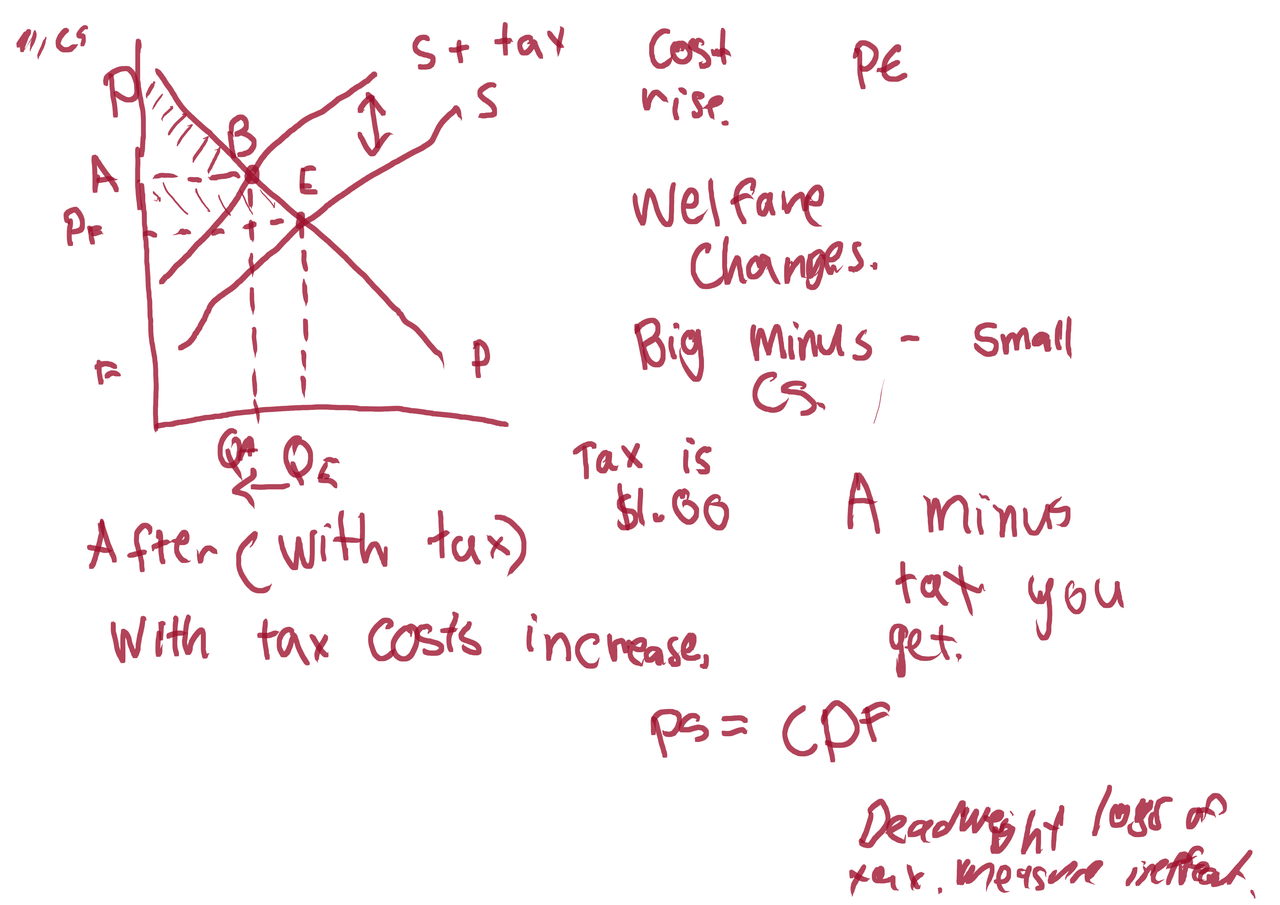 S + tax
S
D
A
B
E
PF
F
D
QA QE
After (with tax)
With tax costs increase,
Cost
rise.
PE
Welfare
Changes.
Big minus - small
CS.
Tax is
$1.00
A minus
tax you
get.
PS = CDF
Deadweight loss of
tax. measure